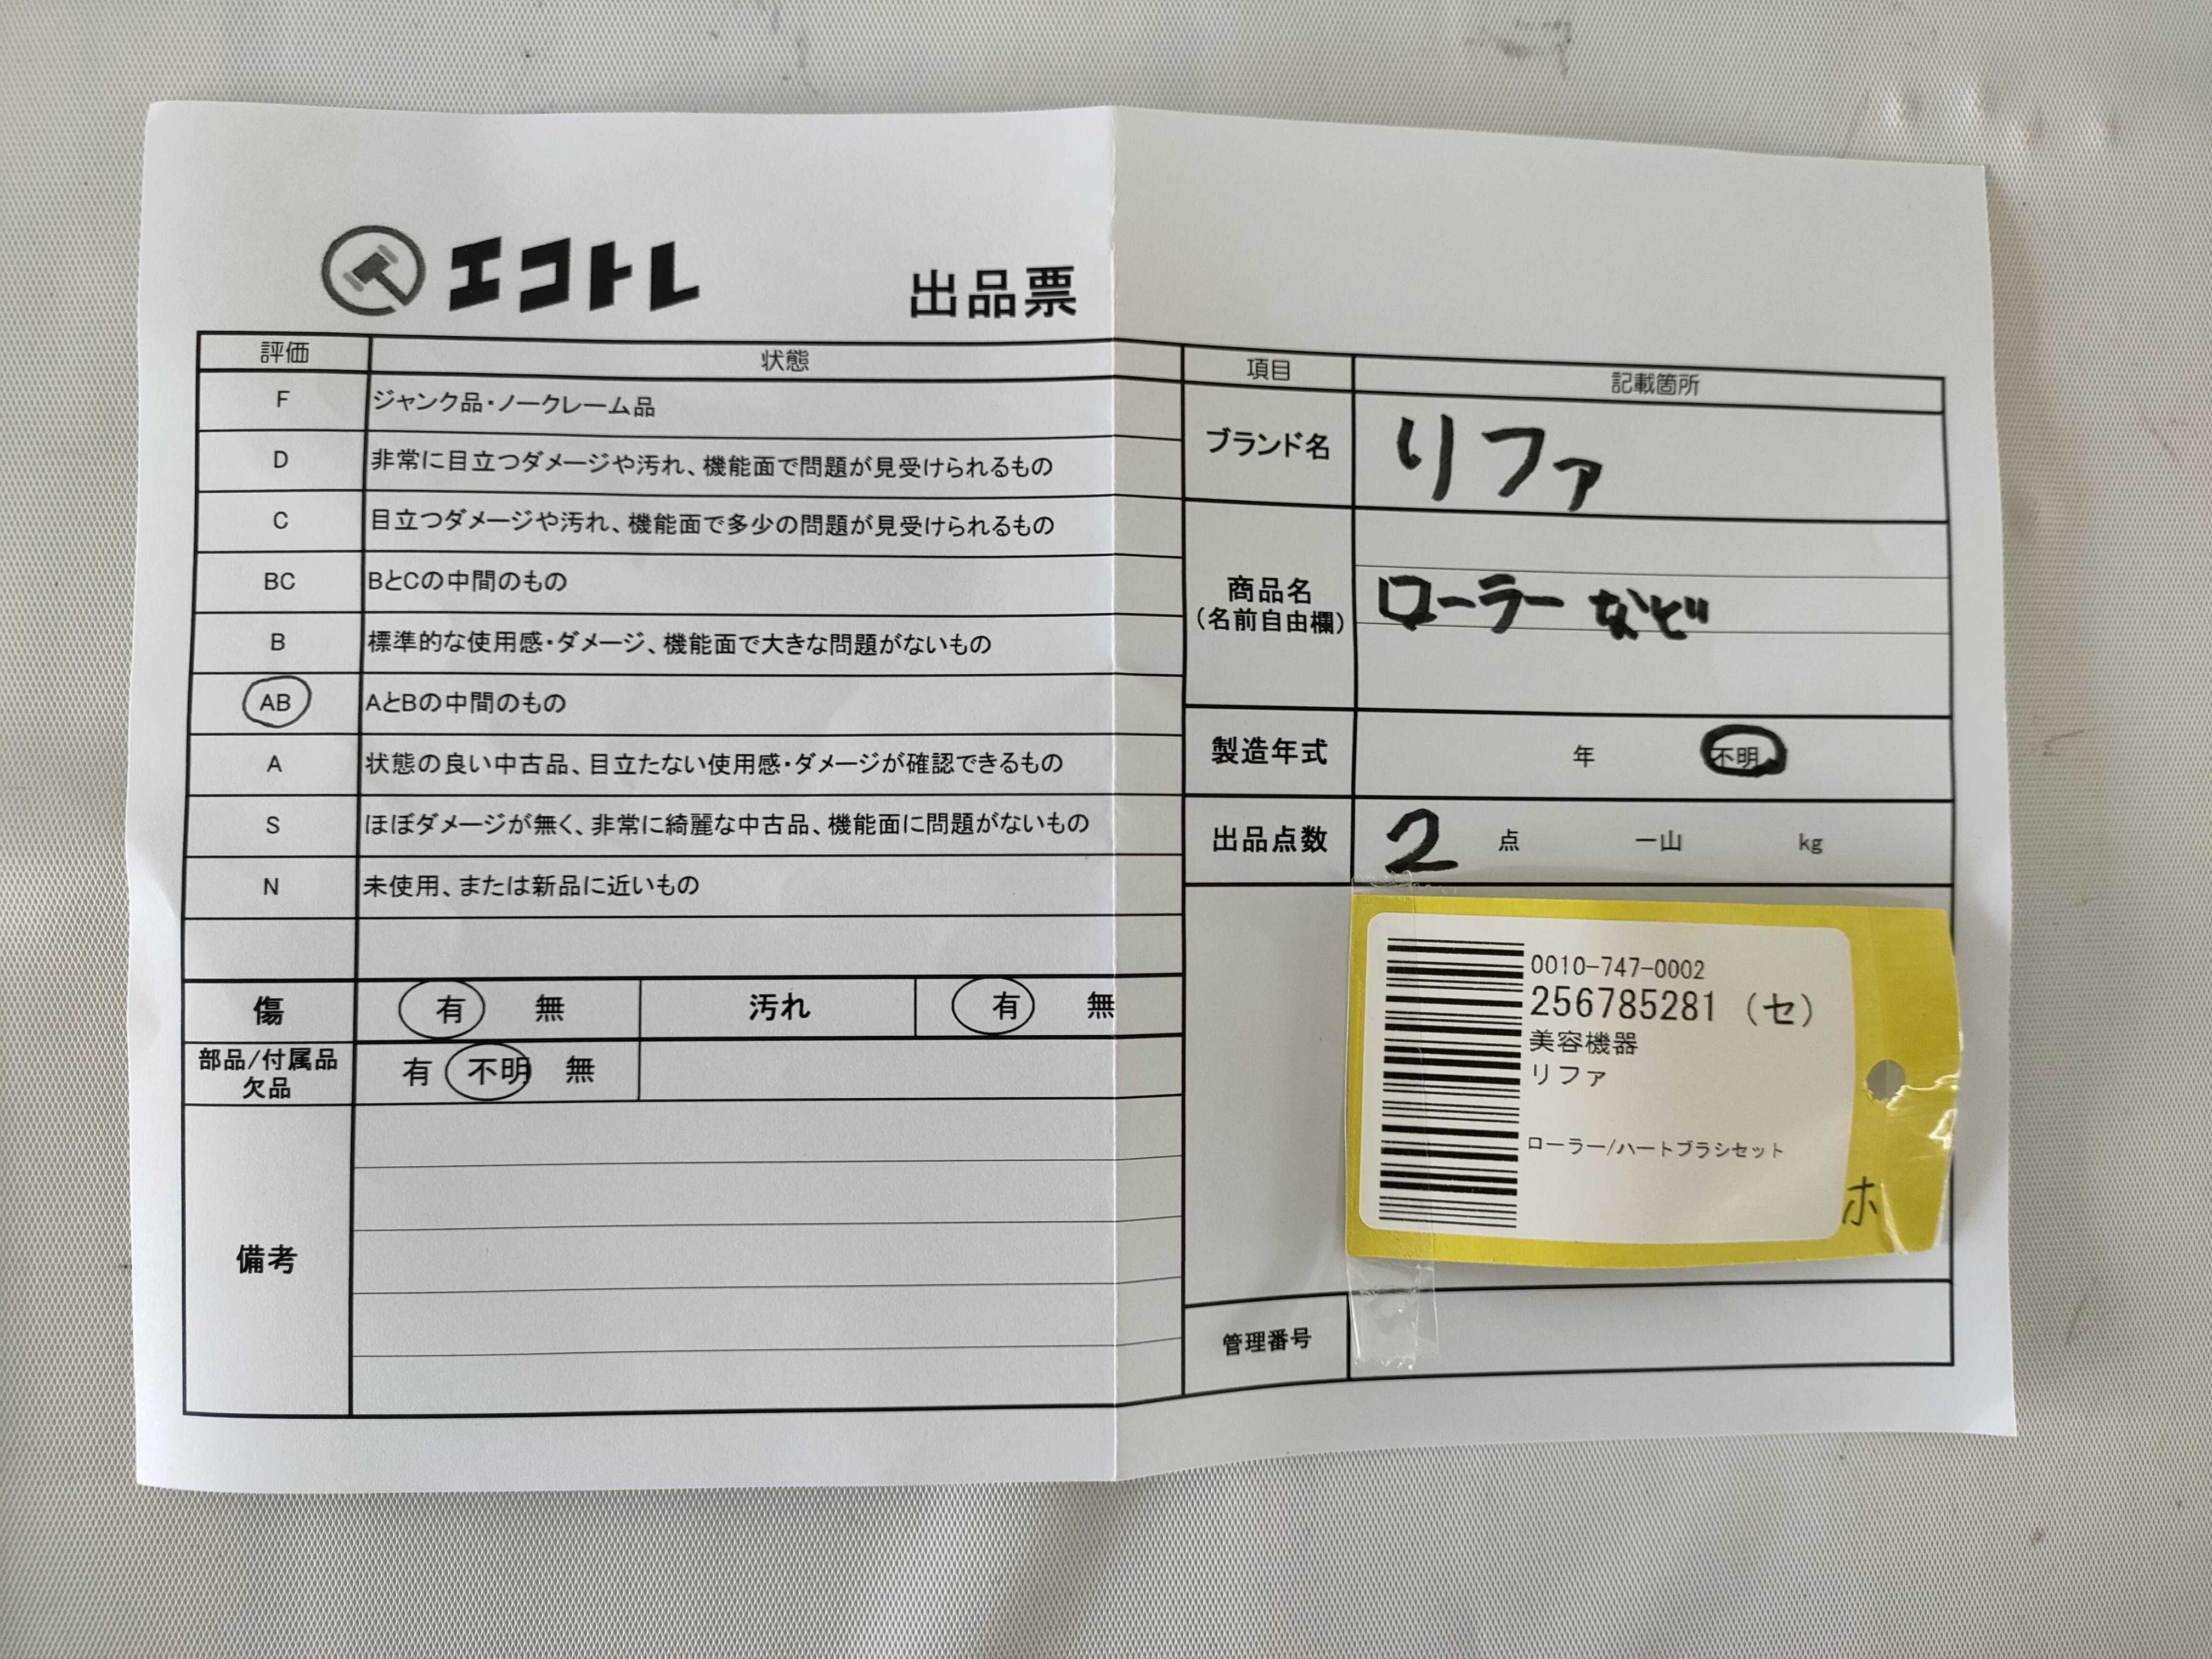 エコトレ 出品票
評価 状態
F ジャンク品・ノークレーム品
D 非常に目立つダメージや汚れ、機能面で問題が見受けられるもの
C 目立つダメージや汚れ、機能面で多少の問題が見受けられるもの
BC BとCの中間のもの
B 標準的な使用感・ダメージ、機能面で大きな問題がないもの
AB AとBの中間のもの
A 状態の良い中古品、目立たない使用感・ダメージが確認できるもの
S ほぼダメージが無く、非常に綺麗な中古品、機能面に問題がないもの
N 未使用、または新品に近いもの
傷 有 無 汚れ 有 無
部品/付属品
欠品 有 不明 無
備考
項目 記載箇所
ブランド名 リファ
商品名
(名前自由欄) ローラーなど
製造年式 年 不明
出品点数 2 点 一山 kg
0010-747-0002
256785281 (セ)
美容機器
リファ
ローラー/ハートブラシセット
ホ
管理番号